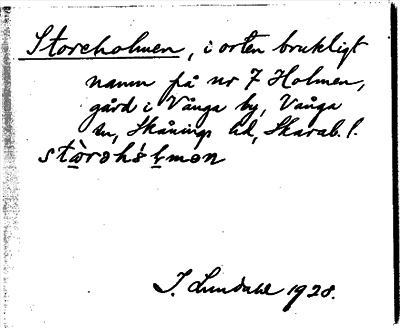 Storeholmen, i orten brukligt
namn på nr 7 Holmen,
gård i Vånga by, Vånga
sn, Skånings hd, Skarab. l.
I. Lundahl 1928.